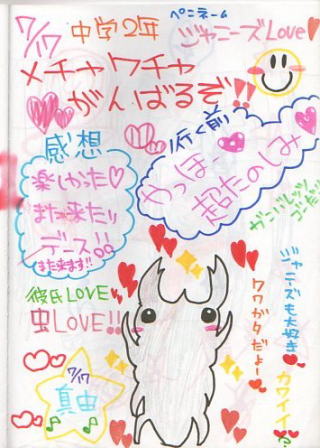 7/17
中学2年
ペンネーム
ジャニーズLove
メチャクチャ
がんばるぞ!!
感想
楽しかった♡
また来たい
デース!!
また来ます!!
行く前
やっほー
超たのしみ
彼氏LOVE
虫LOVE!!
ジャニーズも大好き
クワガタだょー
カワイイ?
7/17
真由